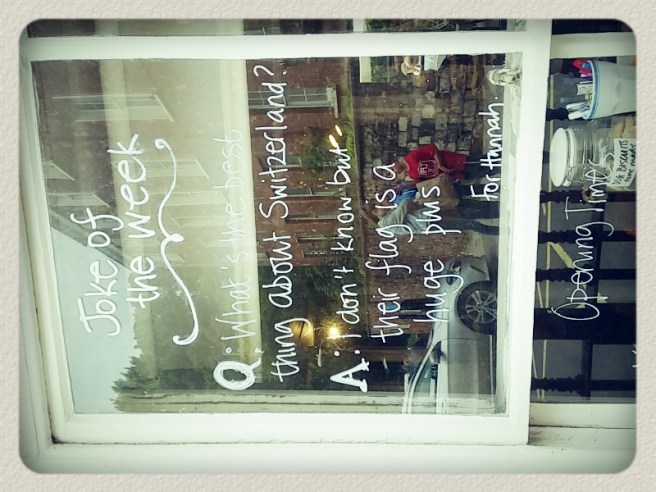 Joke of
the week
Q: What's the best
thing about Switzerland?
A: I don't know but..
their flag is a
huge plus
For Hannah
Opening Times
BISCUITS